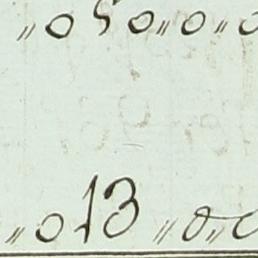 〃050〃0〃0
〃013〃0〃0